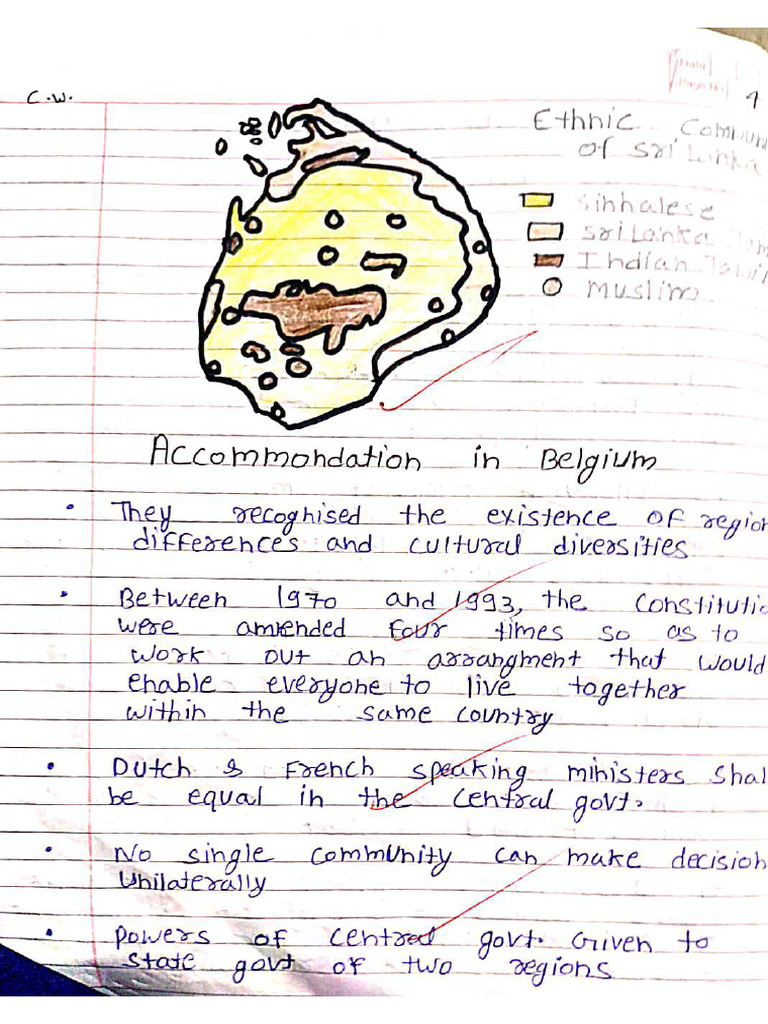 C.W.
Ethnic
of Sri Lanka
Sinhalese
Sri Lanka
Indian
Muslim
Accommondation in Belgium
• They recoghised the existence of region
differences and cultural diversities
• Between 1970 and 1993, the constitutio
were amended four times so as to
work out an arrangment that would
enable everyone to live together
within the same country
• Dutch & French speaking ministers shal
be equal in the central govt.
• No single community can make decision
unilaterally
• Powers of central govt. Given to
state govt of two regions